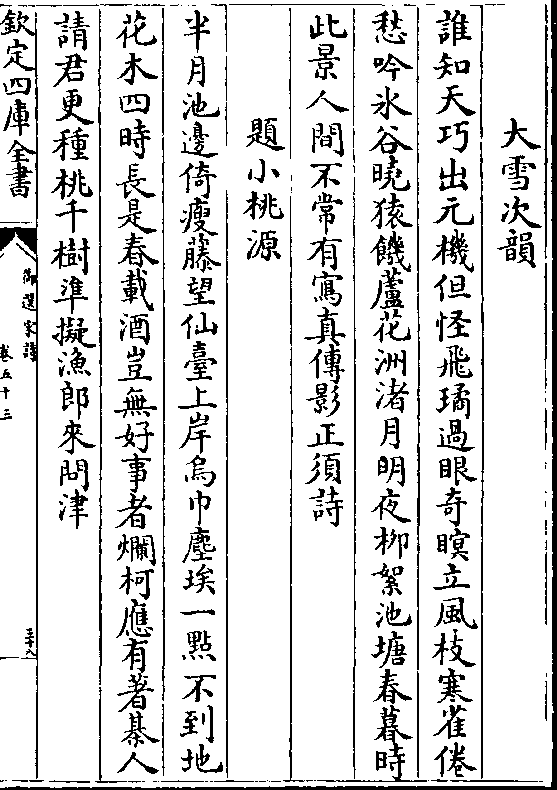 大雪次韻
誰知天巧出元機但怪飛璚過眼奇瞑立風枝寒雀倦
愁吟氷谷曉猿饑蘆花洲渚月明夜栁絮池塘春暮時
此景人間不常有寫真傳影正須詩
題小桃源
半月池邊倚瘦藤望仙臺上岸烏巾塵埃一點不到地
花木四時長是春載酒豈無好事者爛柯應有著棊人
請君更種桃千樹準擬漁郎來問津
欽定四庫全書
御選宋詩
卷五十三